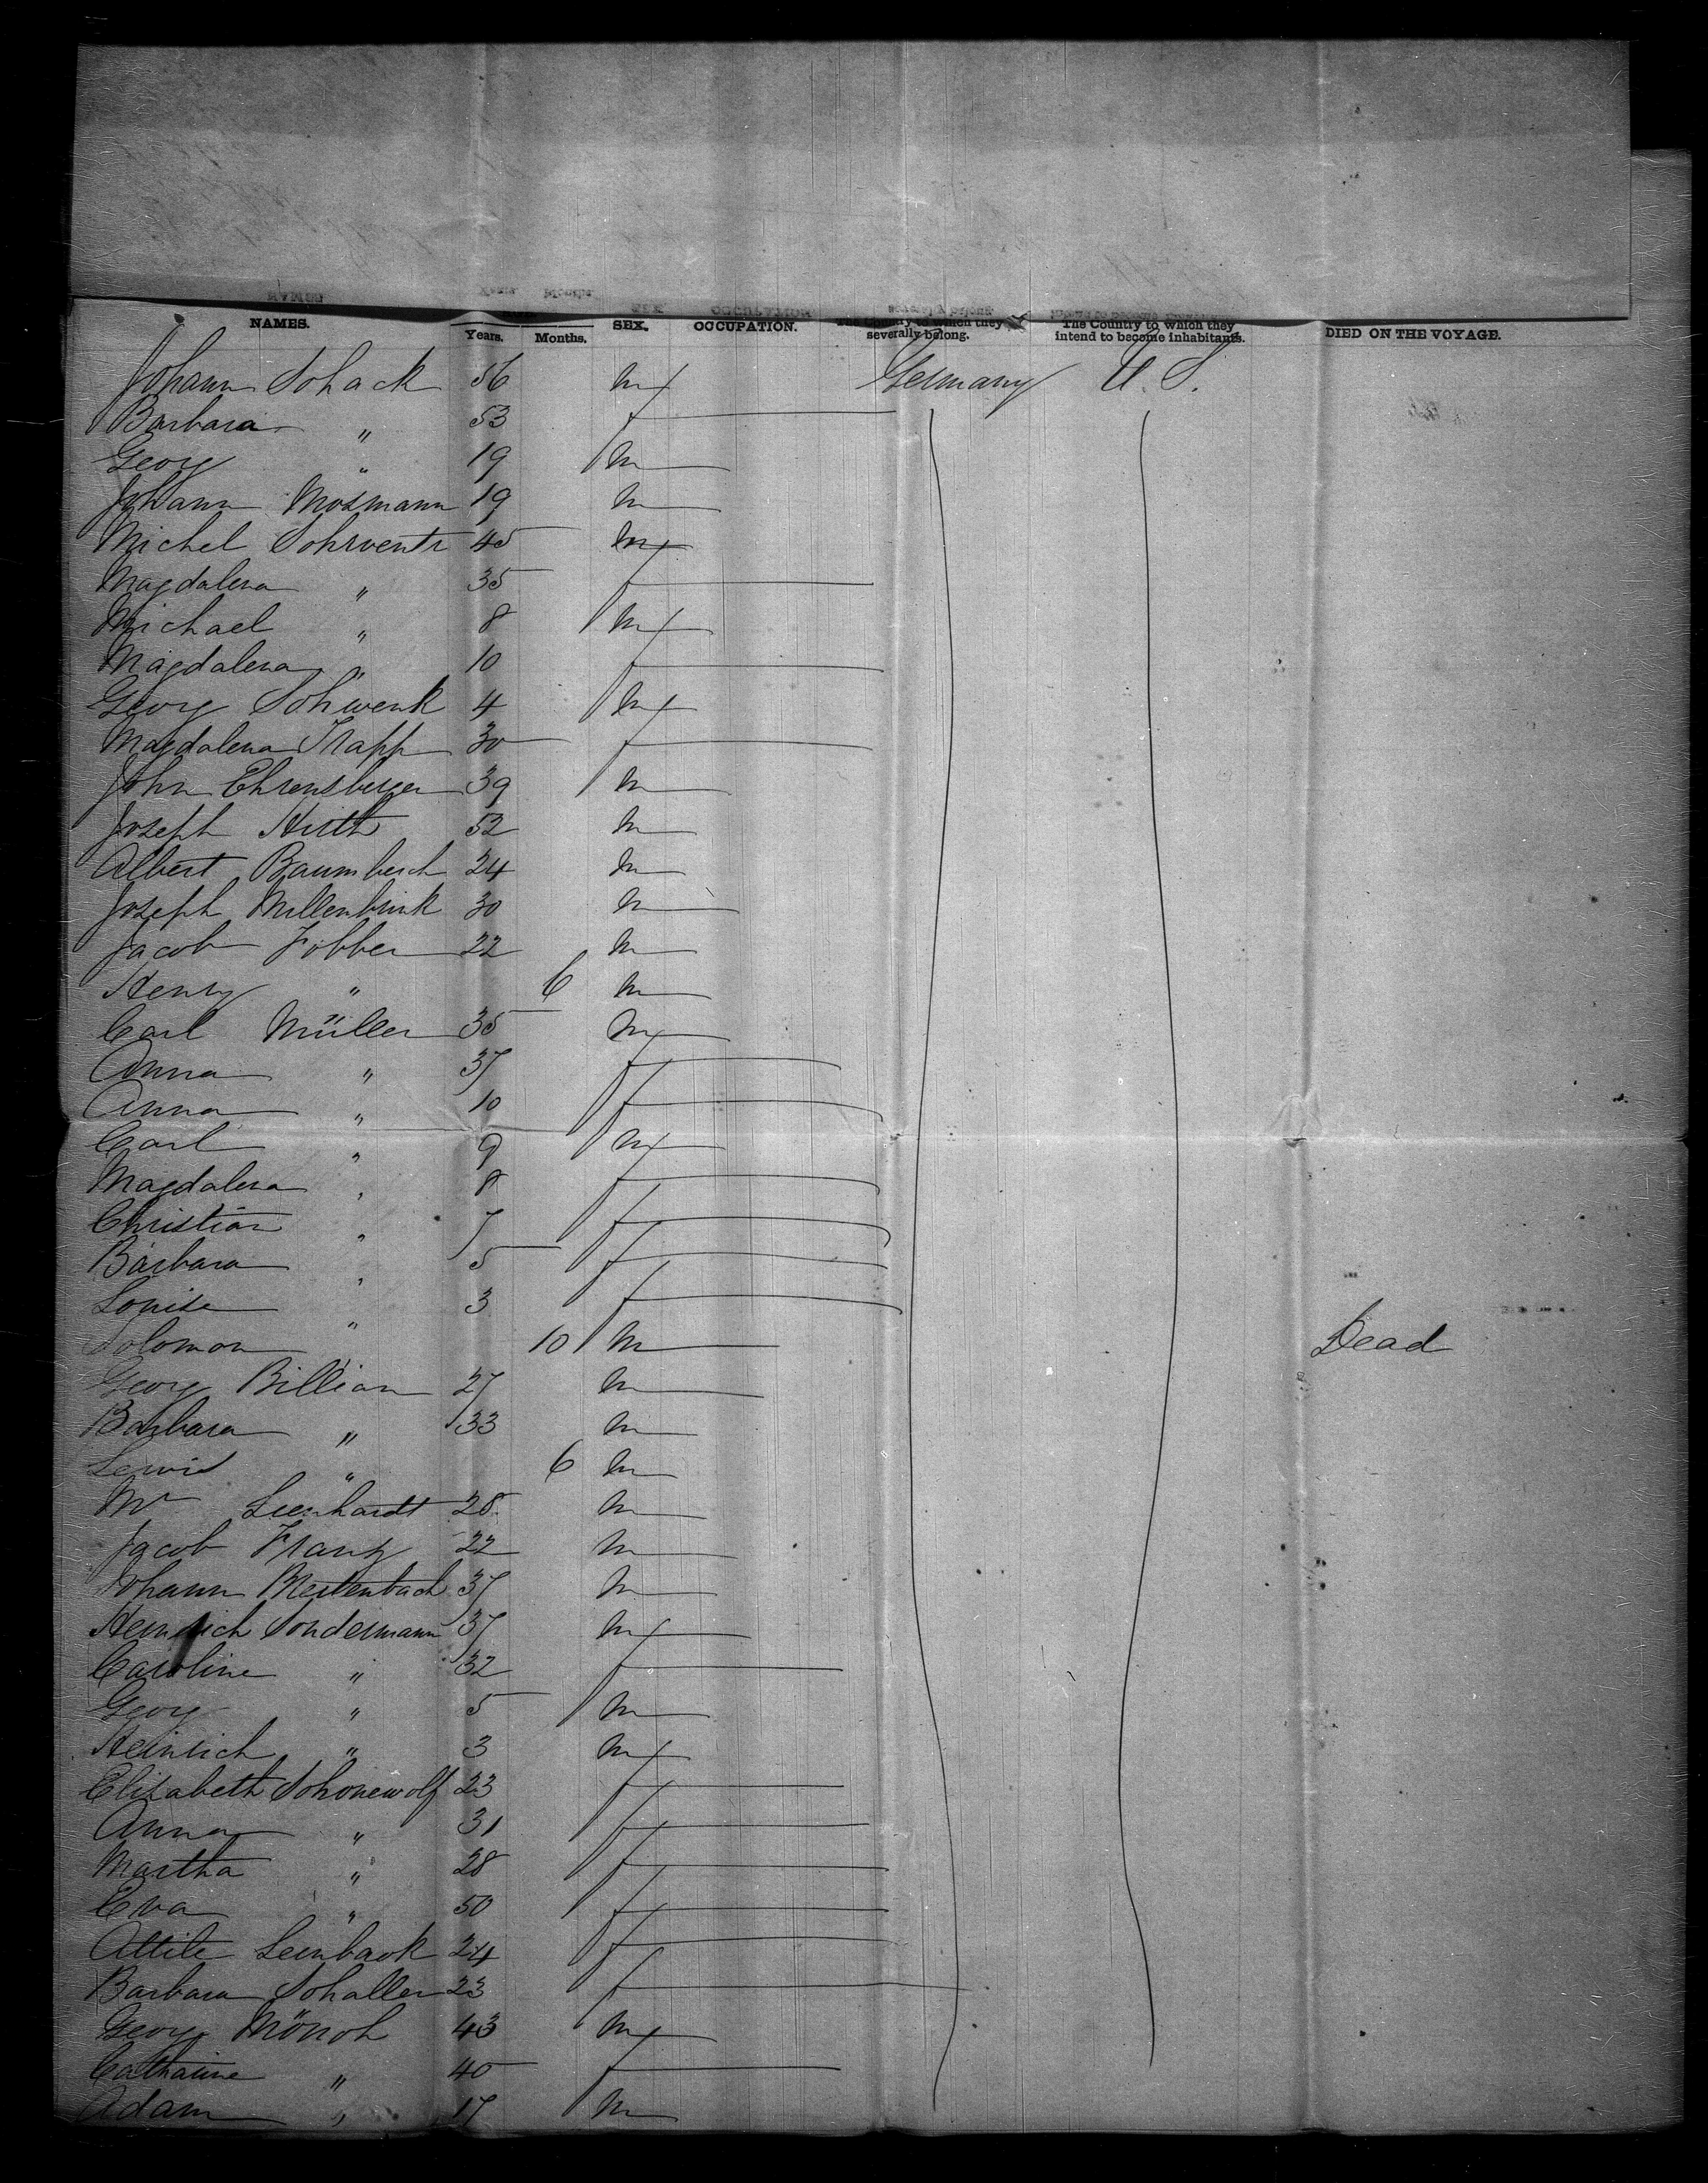 NAMES. Years. Months. SEX. OCCUPATION. The Country to which they severally belong. The Country to which they intend to become inhabitants. DIED ON THE VOYAGE.
Johann Schack 56 m Germany U. S.
Barbara " 53 f
Georg " 19 m
Johann Mosmann 19 m
Michel 45 m
Magdalena " 35 f
Michael " 8 m
Magdalena " 10 f
Georg Schwenk 4 m
Magdalena Trapp 30 f
John Ehrensberger 39 m
Joseph Hirth 52 m
Albert 24 m
Joseph 30 m
Jacob Fobber 22 m
Henry " 6 m
Carl Müller 35 m
Anna " 37 f
Anna " 10 f
Carl " 9 m
Magdalena " 8 f
Christian " 7 f
Barbara " 5 f
Louise " 3 f
Solomon " 10 m Dead
Georg Billian 27 m
Barbara " 33 m
Lewis " 6 m
Mr Leenhardt 28 m
Jacob Franz 22 m
Johann 37 m
Heinrich Sondermann 37 m
Caroline " 32 f
Georg " 5 m
Heinrich " 3 m
Elizabeth Schonewolf 23 f
Anna " 31 f
Martha " 28 f
Eva " 50 f
24 f
Barbara Schaller 23 f
Georg Mönch 43 m
Catharine " 40 f
Adam " 17 m